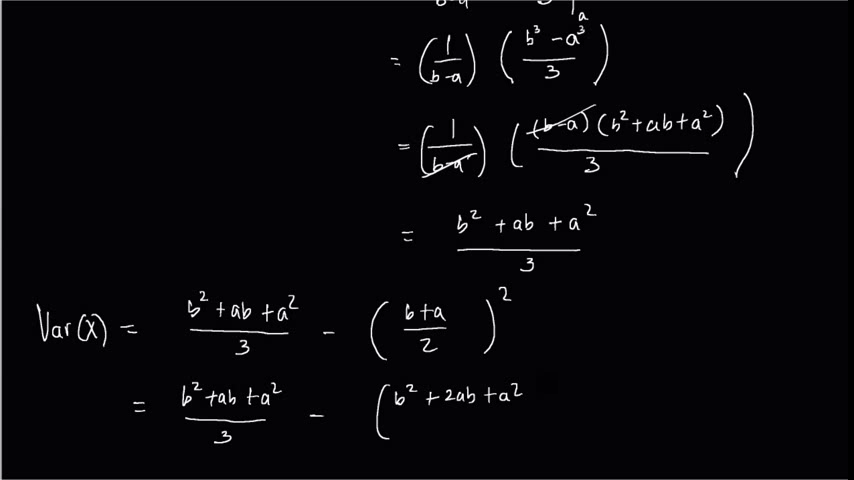 = (1/(b-a)) ((b³ - a³)/3)
= (1/(b-a)) (((b-a)(b² + ab + a²))/3)
= (b² + ab + a²)/3
Var(X) = (b² + ab + a²)/3 - ((b+a)/2)²
= (b² + ab + a²)/3 - (b² + 2ab + a²